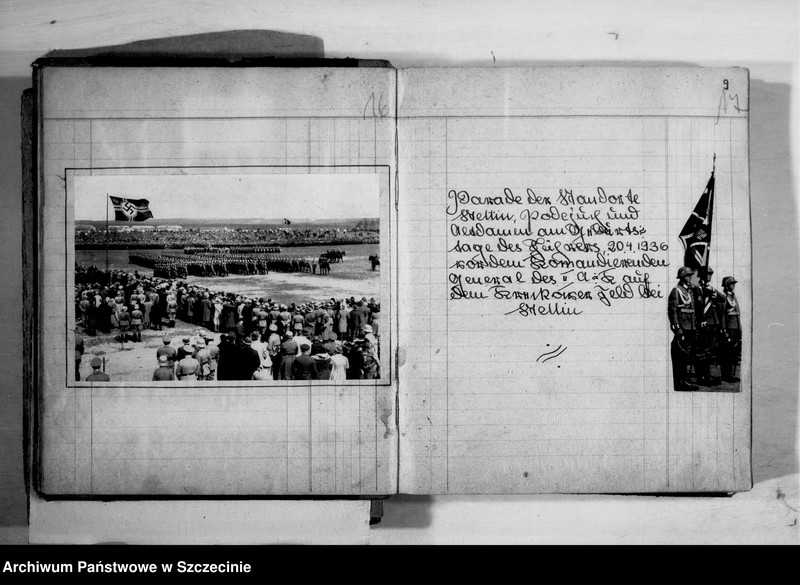 16
9
17
Parade der Standorte
Stettin, Podejuch und
Altdamm am Geburts-
tage des Führers, 20.4.1936
vor dem Komandierenden
General des II. A=K auf
dem Kreckower Feld bei
Stettin
Archiwum Państwowe w Szczecinie